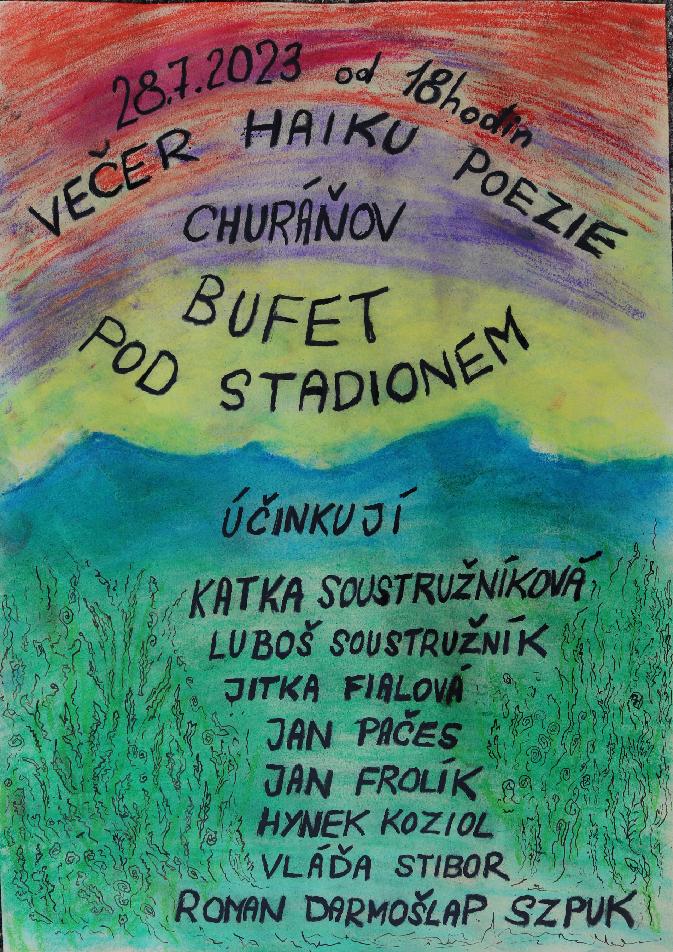 28.7.2023 od 18hodin
VEČER HAIKU POEZIE
CHURÁŇOV
BUFET
POD STADIONEM
ÚČINKUJÍ
KATKA SOUSTRUŽNÍKOVÁ,
LUBOŠ SOUSTRUŽNÍK
JITKA FIALOVÁ
JAN PAČES
JAN FROLÍK
HYNEK KOZIOL
VLÁĎA STIBOR
ROMAN DARMOŠLAP SZPUK